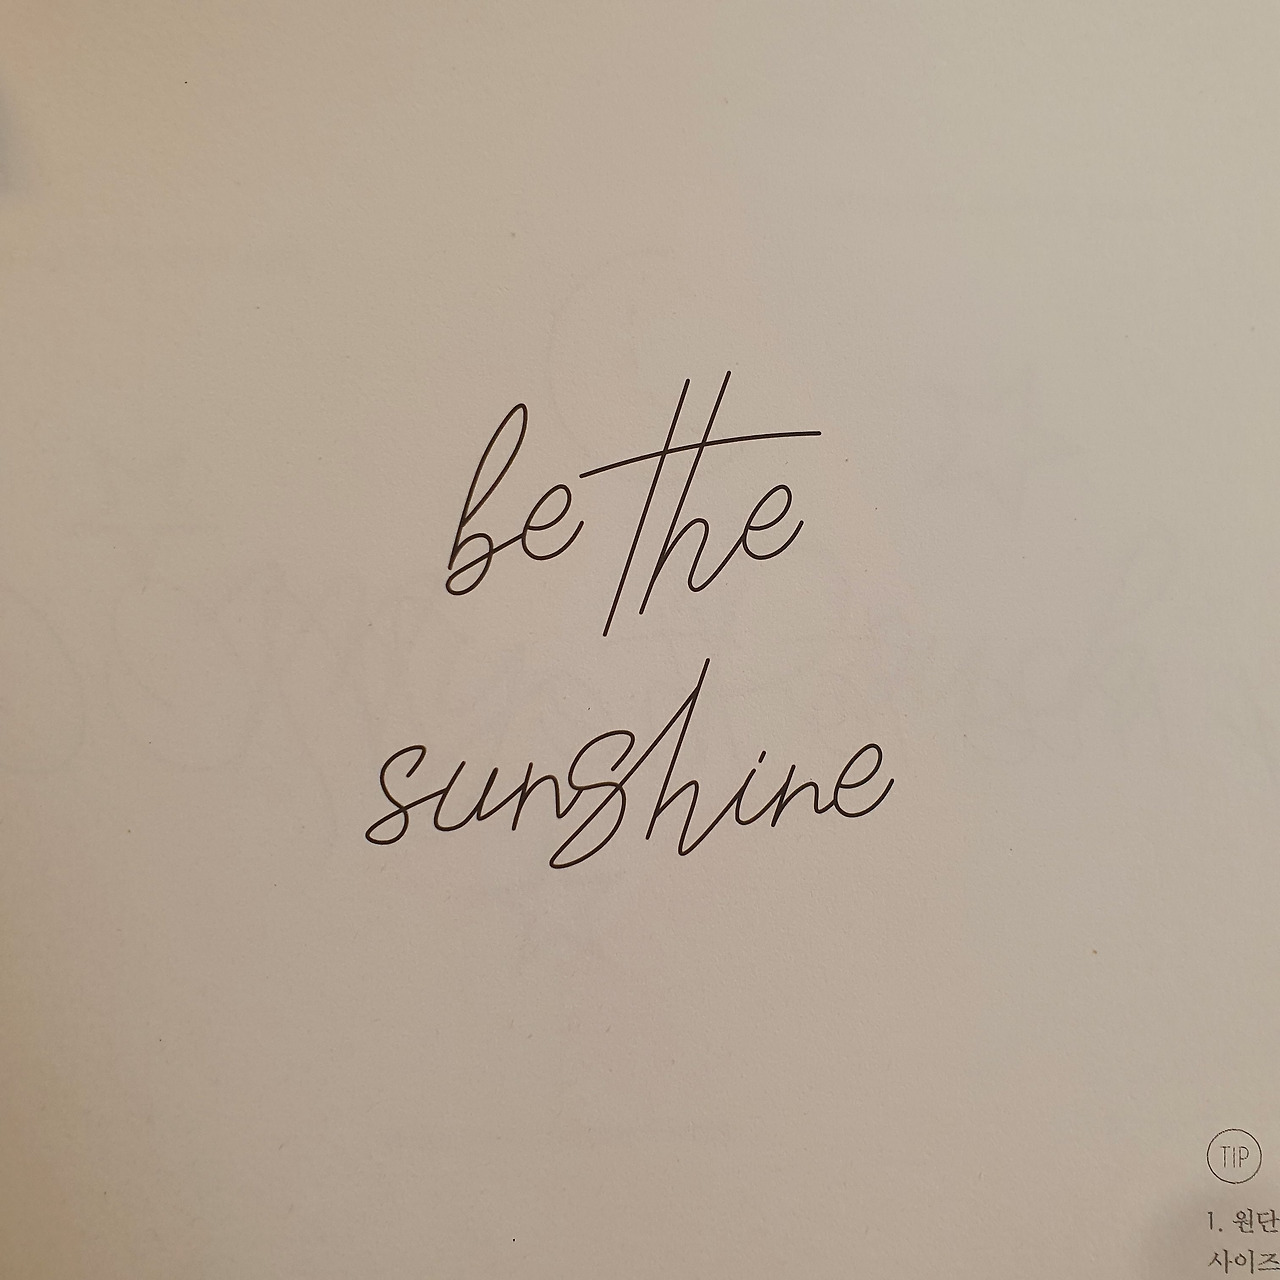 be the
sunshine
TIP
1. 원단
사이즈